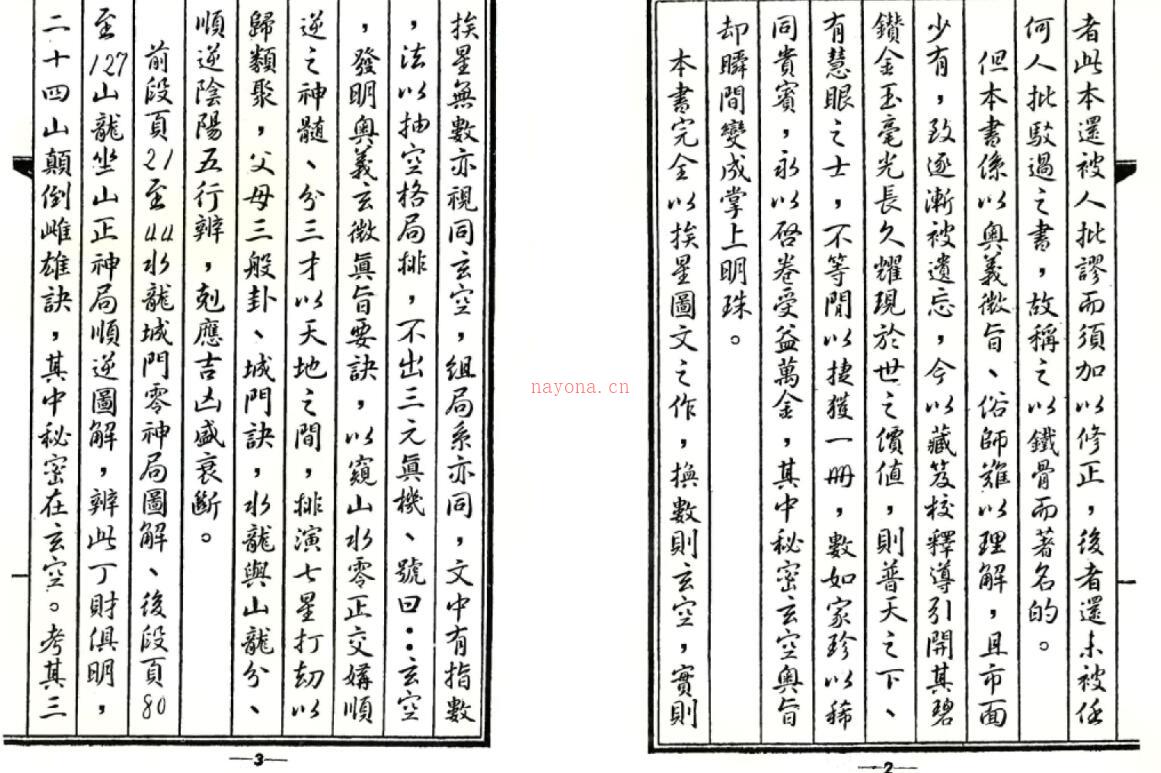 者此本還被人批謬而須加以修正，後者還未被任
何人批駁過之書，故稱之以鐵骨而著名的。
但本書係以奧義微旨、俗師難以理解，且市面
少有，致逐漸被遺忘，今以藏笈校釋導引開其碧
鑽金玉毫光長久耀現於世之價值，則普天之下、
有慧眼之士，不等閒以捷獲一冊，數如家珍以稀
同貴賓，永以啓卷受益萬金，其中秘密玄空奧旨
却瞬間變成掌上明珠。
本書完全以挨星圖文之作，換數則玄空，實則
2
挨星無數亦視同玄空，組局系亦同，文中有指數
，法以抽空格局排，不出三元眞機、號曰：玄空
，發明奧義玄微眞旨要訣，以窺山水零正交媾順
逆之神髓、分三才以天地之間，排演七星打刼以
歸類聚，父母三般卦、城門訣，水龍與山龍分、
順逆陰陽五行辨，剋應吉凶盛衰斷。
前段頁21至44水龍城門零神局圖解、後段頁80
至127山龍坐山正神局順逆圖解，辨此丁財俱明，
二十四山顛倒雌雄訣，其中秘密在玄空。考其三
3
nayona.cn